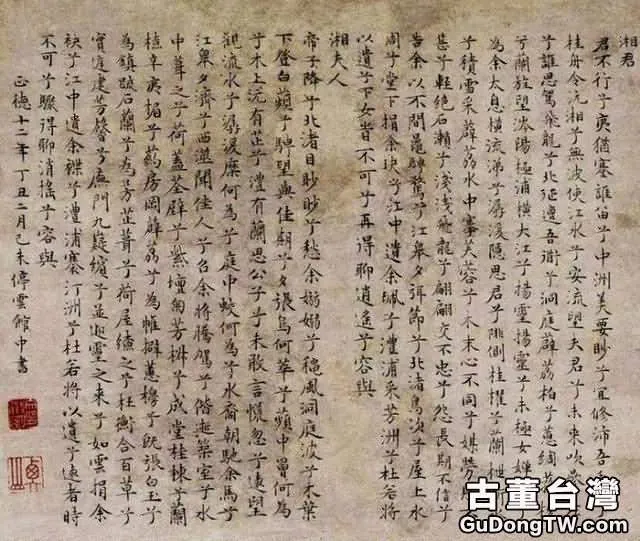 湘君
君不行兮夷猶蹇誰留兮中洲美要眇兮宜修沛吾
桂舟令沅湘兮無波使江水兮安流望夫君兮未來吹
兮誰思駕飛龍兮北征邅吾道兮洞庭薜荔柏兮蕙綢
兮蘭旌望涔陽極浦橫大江兮揚靈揚靈兮未極女嬋
為余太息橫流涕兮潺湲隱思君兮陫側桂櫂兮蘭枻
兮積雪采薜荔水中搴芙蓉兮木末心不同兮媒勞
甚兮輕絕石瀨兮淺淺飛龍兮翩翩交不忠兮怨長期不信兮
告余以不間鼂騁騖兮江皋夕弭節兮北渚鳥次兮屋上水
周兮堂下捐余玦兮江中遺余佩兮澧浦采芳洲兮杜若將
以遺兮下女時不可兮再得聊逍遙兮容與
湘夫人
帝子降兮北渚目眇眇兮愁余嫋嫋兮穐風洞庭波兮木葉
下登白薠兮騁望與佳期兮夕張鳥何萃兮蘋中罾何為
兮木上沅有芷兮澧有蘭思公子兮未敢言慌忽兮遠望
觀流水兮潺湲麋何為兮庭中蛟何為兮水裔朝馳余馬兮
江皋夕濟兮西澨聞佳人兮召余將騰駕兮偕逝築室兮水
中葺之兮荷蓋荃壁兮紫壇匊芳椒兮成堂桂棟兮蘭
橑辛夷楣兮葯房罔薜荔兮為帷擗蕙櫋兮既張白玉兮
為鎮疏石蘭兮為芳芷葺兮荷屋繚之兮杜衡合百草兮
實庭建芳馨兮廡門九嶷繽兮並迎靈之來兮如雲捐余
袂兮江中遺余褋兮澧浦搴汀洲兮杜若將以遺兮遠者時
不可兮驟得聊消搖兮容與
正德十二年丁丑二月己未停雲館中書
古董台灣
GuDongTW.com